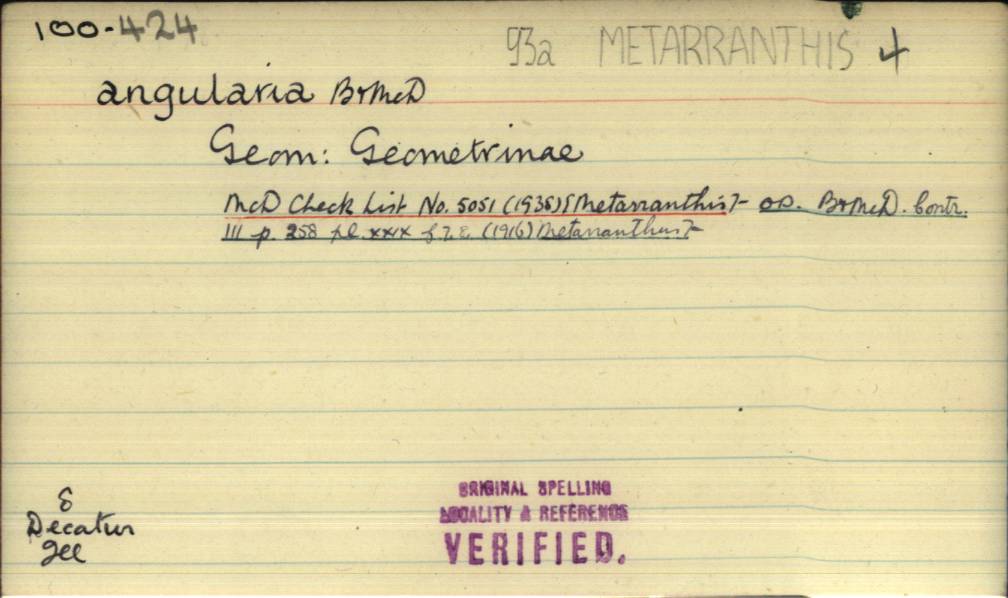 100-424
93a METARRANTHIS +
angularia B+McD
Geom: Geometrinae
McD Check List No. 5051 (1938) [Metarranthis]- OD. B+McD. Contr.
III p. 258 pl. xxix f. 7. (1916) Metarranthis]-
8
Decatur
Ill
ORIGINAL SPELLING
LOCALITY & REFERENCE
VERIFIED.